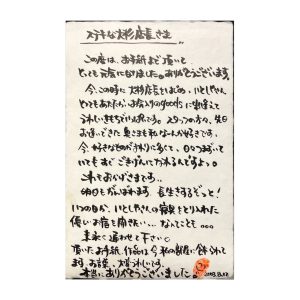 ステキな大杉店長さま
この度は、お手紙まで頂いて
とっても元気になりました。ありがとうございます。
今、この時に大杉店長をはじめ、いとしやさん、
とてもあたたかいお気入りのgoodsに出逢えて
うれしい気もちでいっぱいです。スタッフの方々、先日
お逢いできた奥さまも私なーんか好きです。
今、好きなものがまわりに多くて、日々つまずいて
いてもすぐごきげんになれるんですよっ。
これもおかげさまです。
明日もがんばれます 長生きするぞっと!
いつの日か、いとしやさんの寝具をとり入れた
優しいお宿を開きたい… なんてことも…
末永く通わせて下さい。
頂いたお手紙、作品は今私の部屋に飾られて
ます。お話、大好きいしです。
本当にありがとうございました!
2018.8.17